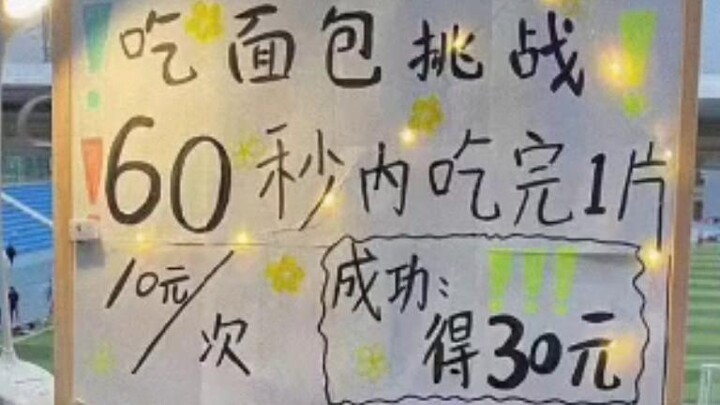 吃面包挑战!
60秒内吃完1片
10元/次
成功:!!!
得30元